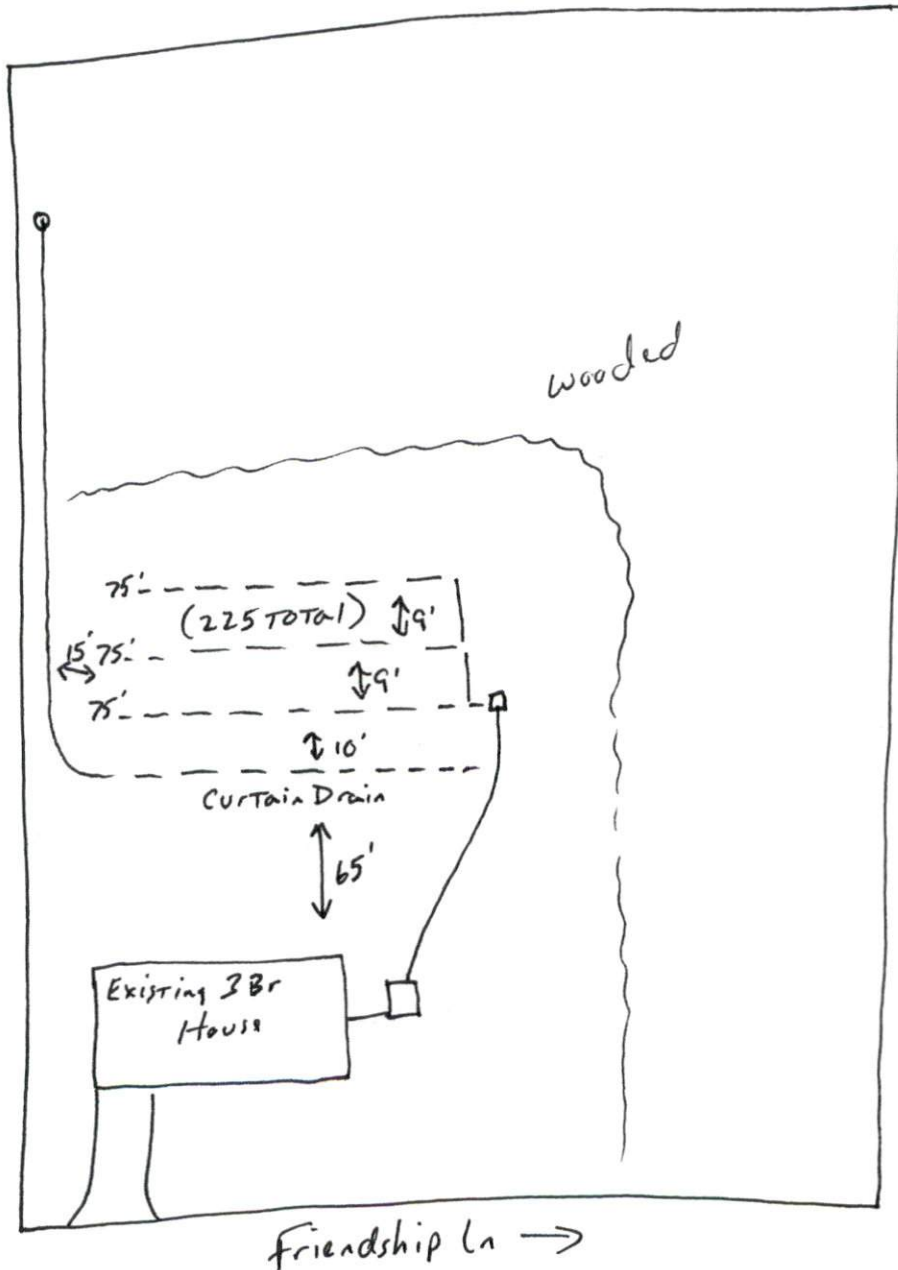 wooded
75'
(225 Total)
9'
15'
75'
9'
75'
10'
Curtain Drain
65'
Existing 3 Br
House
Friendship Ln →